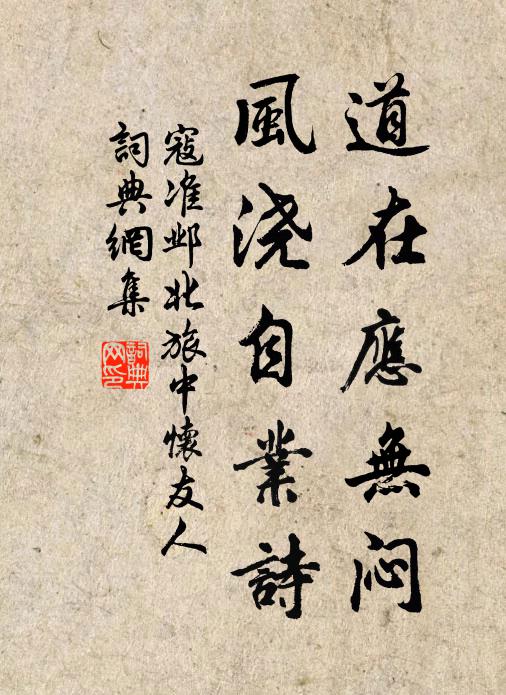 道在應無悶
風浇自業詩
寇准邺北旅中懷友人
詞典網集
詞典
网印